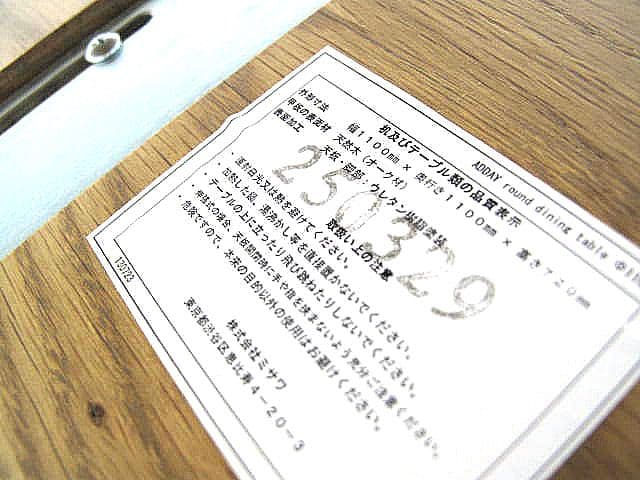 ADDAY round dining table
机及びテーブル類の品質表示
外形寸法 幅1100mm × 奥行き1100mm × 高さ720mm
甲板の表面材 天然木(オーク材)
表面加工 天板・脚部:ウレタン樹脂塗装
取扱い上の注意
・直射日光又は熱を避けてください。
・加熱した鍋、湯沸かし等を直接置かないでください。
・テーブルの上に立ったり飛び跳ねたりしないでください。
・伸長式の場合、天板開閉時に手や指を挟まないよう充分ご注意ください。
危険ですので、本来の目的以外の使用はお避けください。
株式会社ミサワ
東京都渋谷区恵比寿4-20-3
130723
250329